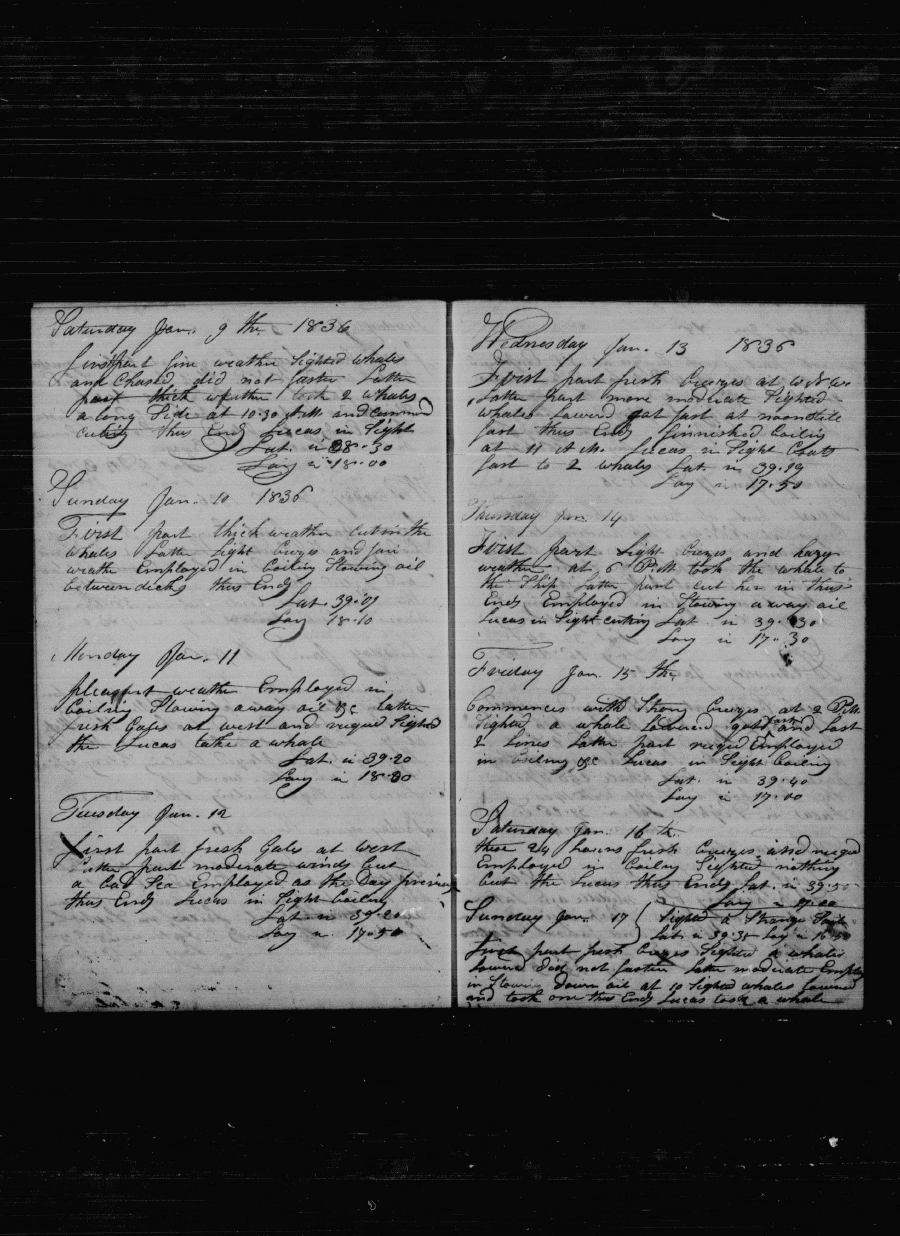 Saturday Jan. 9 th 1836
First part fine weather Sighted whales
and Chased did not fasten Latter
part thick weather took 2 whales
a long Side at 10.30 AM and commencd
cuting thus Ends Lucas in Sight
Lat. in 38.30
Long in 18.00
Sunday Jan. 10 1836
First part thick weather cut in the
whales Latter light brezes and fair
weath Employed in Boiling Stowing oil
between decks thus Ends
Lat. 39.01
Long 18.10
Monday Jan. 11
pleasant weather Employed in
Boiling Stowing away oil &c Latter
fresh Gales at west and ruged Sighted
the Lucas take a whale
Lat. in 39.20
Long in 18.00
Tuesday Jan. 12
First part fresh Gales at West
Latter part moderate winds but
a bad Sea Employed as the Day previous
thus Ends Lucas in Sight boiling
Lat in 39.20
Long in 17.50
Wednesday Jan. 13 1836
First part fresh brezes at
Latter part more moderate Sighted
whales Lowered got fast at noon
fast thus Ends finnished Boiling
at 11 A.M. Lucas in Sight Boats
fast to 2 whales Lat. in 39.19
Long in 17.50
Thursday Jan. 14
First part Light brezes and hazey
weather at 6 P.M took the whale to
the Ship Latter part cut her in thus
Ends Employed in Stowing away oil
Lucas in Sight cuting Lat. in 39.30
Long in 17.30
Friday Jan. 15 th
Commences with Strong brezes at 2 P.M.
Sighted a whale Lowered got fast and Lost
2 Lines Latter part ruged Employed
in boiling &c Lucas in Sight Boiling
Lat. in 39.40
Long in 17.00
Saturday Jan. 16 th
these 24 hours fresh brezes and ruged
Employed in Boiling Sighted nothing
but the Lucas thus Ends Lat. in 39.50
Long in 17.00
Sunday Jan. 17 { Sighted a Strange Sail
Lat. in 39.38 Long in
First part fresh brezes Sighted a whales
Lowered Did not fasten Latter moderate Employ
in Stowing Down oil at 10 Sighted whales Lowered
and took one thus Ends Lucas took a whale